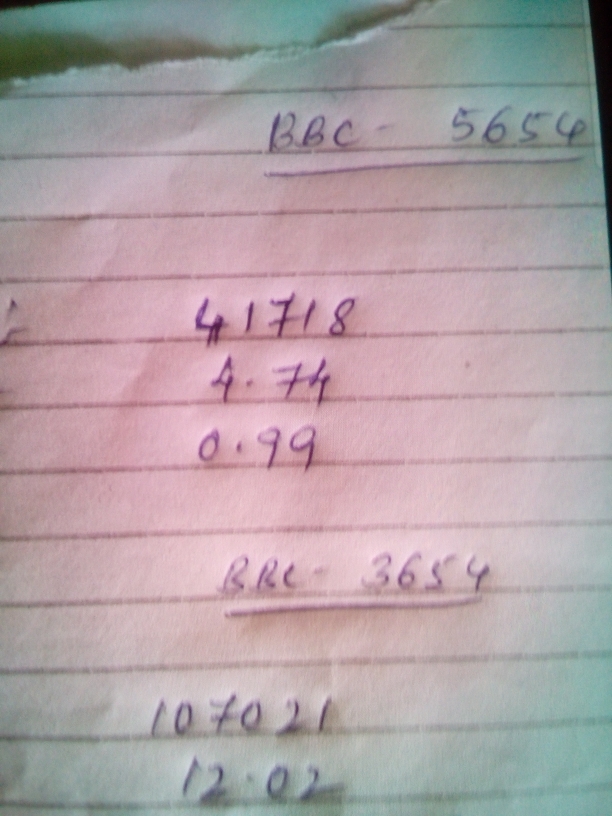 BBC - 5654
41718
4.74
0.99
BBC - 3654
107021
12.02